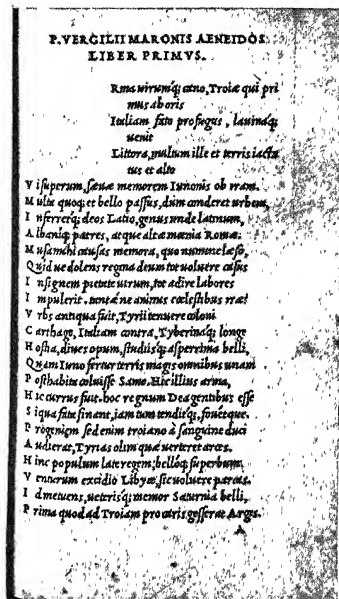 P. VERGILII MARONIS AENEIDOS
LIBER PRIMVS.
Rma uirumq; cano, Troiæ qui pri
mus ab oris
Italiam fato profugus, lauinaq;
uenit
Littora, multum ille et terris iacta
tus et alto
V i superum, sæuæ memorem Iunonis ob iram.
M ulta quoq; et bello passus, dum conderet urbem,
I nferretq; deos Latio, genus unde latinum,
A lbaniq; patres, atque altæ mœnia Romæ.
M usa mihi causas memora, quo numine læso,
Q uid ue dolens regina deum tot uoluere casus
I nsignem pietate uirum, tot adire labores
I mpulerit. tantæ ne animus cœlestibus iræ?
V rbs antiqua fuit, Tyrii tenuere coloni
C arthago, Italiam contra, Tyberinaq; longe
H ostia, diues opum, studiisq; asperrima belli,
Q uam Iuno fertur terris magis omnibus unam
P osthabita coluisse Samo. Hic illius arma,
H ic currus fuit. hoc regnum Dea gentibus esse
S i qua fata sinant, iam tum tenditq; fouetque.
P rogeniem sed enim troiano à sanguine duci
A udierat, Tyrias olim quæ uerteret arces.
H inc populum late regem, belloq; superbum,
V enturum excidio Libyæ, sic uoluere parcas.
I d metuens, ueterisq; memor Saturnia belli,
P rima quod ad Troiam pro caris gesserat Argis.
A